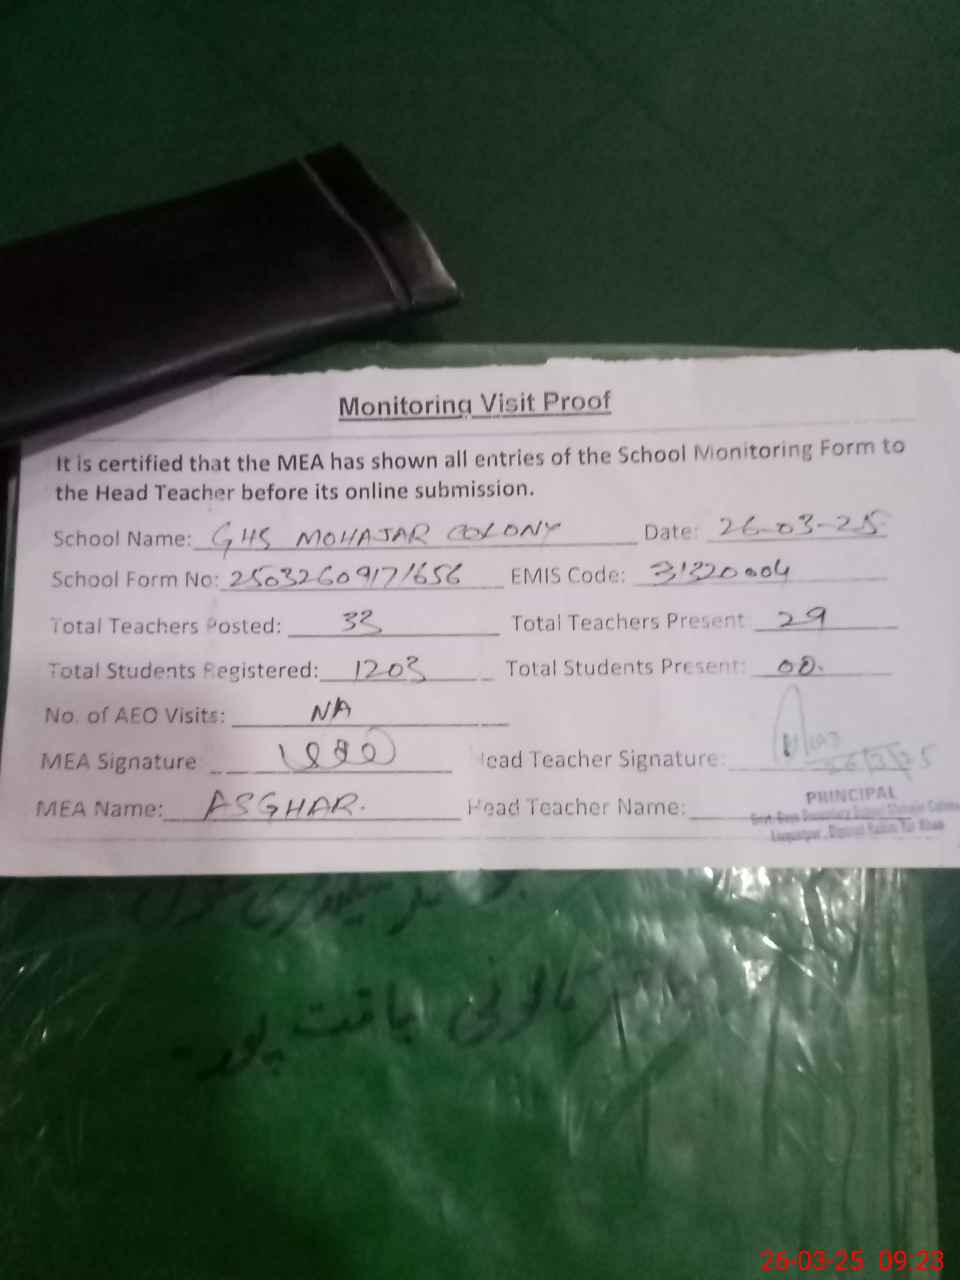 Monitoring Visit Proof
It is certified that the MEA has shown all entries of the School Monitoring Form to
the Head Teacher before its online submission.
School Name: GHS MOHAJAR COLONY Date: 26-03-25
School Form No: 25032609171656 EMIS Code: 31320004
Total Teachers Posted: 33 Total Teachers Present 29
Total Students Registered: 1203 Total Students Present: 00.
No. of AEO Visits: NA
MEA Signature Head Teacher Signature: 26/3/25
MEA Name: ASGHAR. Head Teacher Name:
PRINCIPAL
کالونی لیاقت پور
26-03-25 09:23